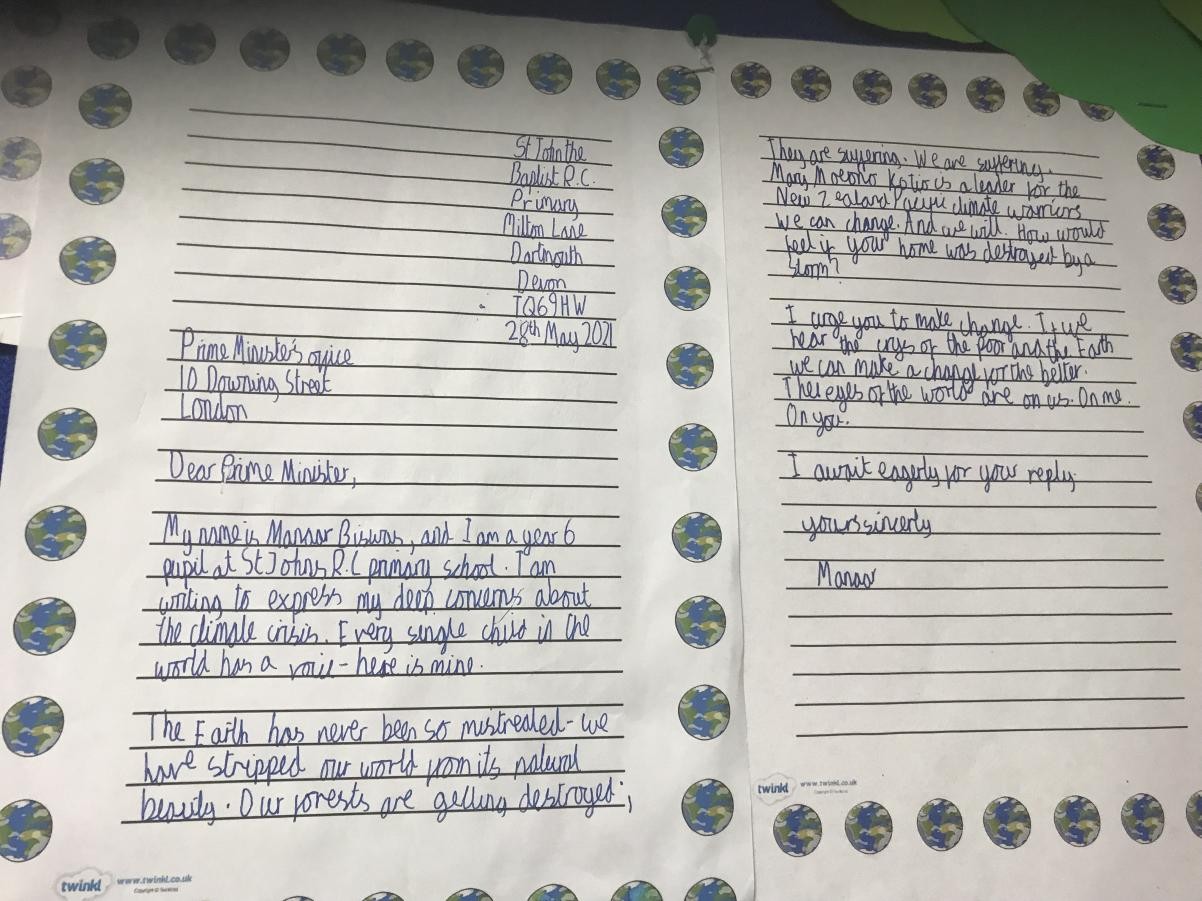 St John the
Baptist R.C.
Primary
Milton Lane
Dartmouth
Devon
TQ69HW
28th May 2021
Prime Minister's office
10 Downing Street
London
Dear Prime Minister,
My name is Manaar Biswas, and I am a year 6
pupil at St Johns R.C primary school. I am
writing to express my deep concerns about
the climate crisis. Every single child in the
world has a voice - here is mine.
The Earth has never been so mistreated - we
have stripped our world from its natural
beauty. Our forests are getting destroyed;
twinkl www.twinkl.co.uk
They are suffering. We are suffering.
Mary Moeono Kolio is a leader for the
New Zealand Pacific climate warriors
We can change. And we will. How would
feel if your home was destroyed by a
storm?
I urge you to make change. If we
hear the cryes of the poor and the Earth
we can make a change for the better.
The eyes of the world are on us. On me.
On you.
I await eagerly for your reply.
yours sincerly
Manaar
twinkl www.twinkl.co.uk